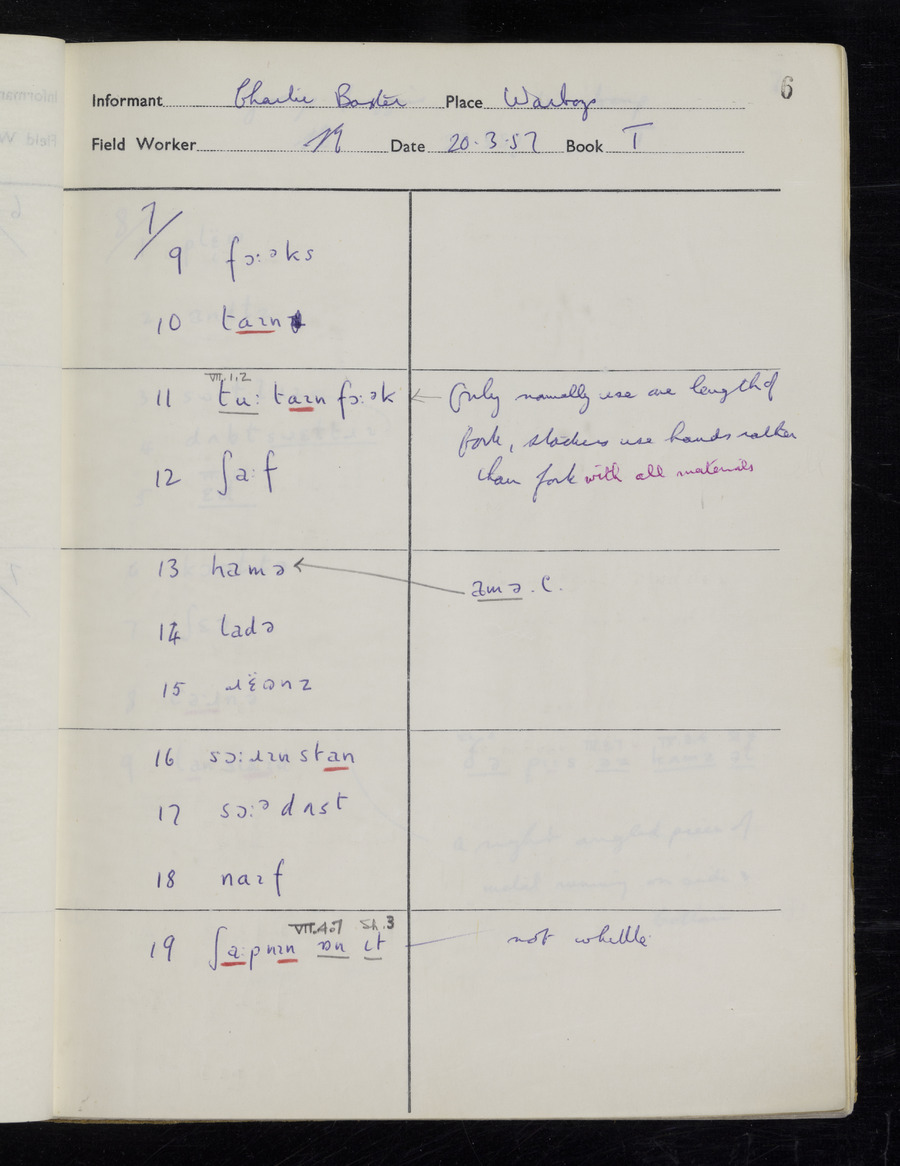 6
Informant Charlie Baxter Place Warboys
Field Worker Date 20.3.57 Book I
7/
9 fɔ:əks
10 taɪn
VII.1.2
11 tu: taɪn fɔ:ək ← Only normally use one length of
fork, stackers use hands rather
12 ʃa:f than fork with all materials
13 hamə
amə. C.
14 ladə
15 ɹɛ̈ənz
16 sɔ:ɹɪn stan
17 sɔ:ə dʌst
18 naɪf
VII.4.7 Sh.3
19 ʃa:pnɪn ɒn ɩt not whittle